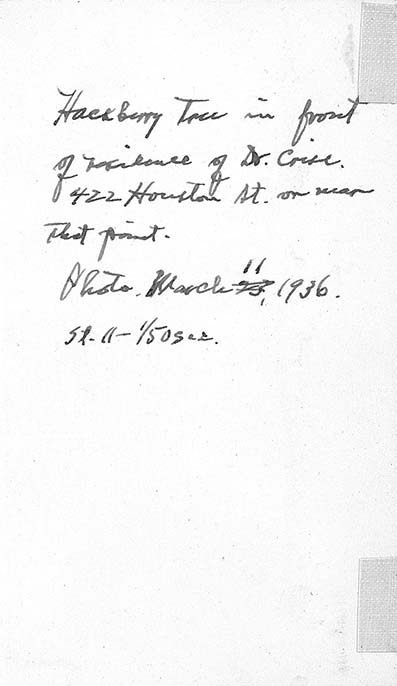 HackBerry Tree in front
of residence of Dr. Crise.
422 Houston St. or near
that point.
Photo. March 11, 1936.
- 1/50 sec.